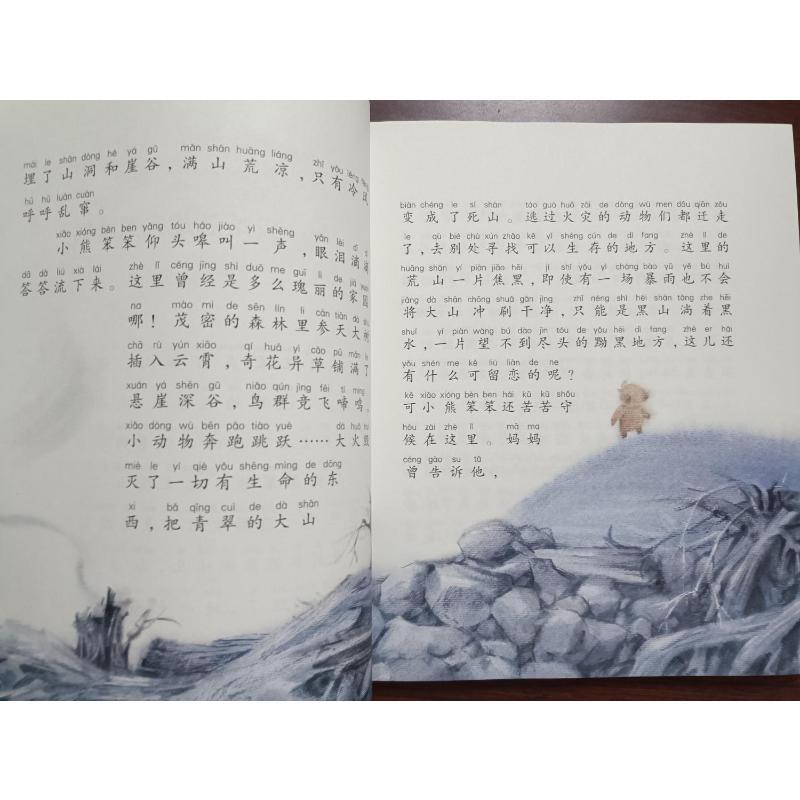 mái le shān dòng hé yá gǔ mǎn shān huāng liáng zhǐ yǒu lěng fēng
埋了山洞和崖谷，满山荒凉，只有冷风
hū hū luàn cuàn
呼呼乱窜。
xiǎo xióng bèn ben yǎng tóu háo jiào yì shēng yǎn lèi dī
小熊笨笨仰头嗥叫一声，眼泪滴滴
dā dā liú xià lái zhè lǐ céng jīng shì duō me guī lì de jiā yuán
答答流下来。这里曾经是多么瑰丽的家园
na mào mì de sēn lín lǐ cān tiān dà
哪！茂密的森林里参天大树
chā rù yún xiāo qí huā yì cǎo pū mǎn le
插入云霄，奇花异草铺满了
xuán yá shēn gǔ niǎo qún jìng fēi tí míng
悬崖深谷，鸟群竞飞啼鸣，
xiǎo dòng wù bēn pǎo tiào yuè dà huǒ huǐ
小动物奔跑跳跃……大火毁
miè le yí qiè yǒu shēng mìng de dōng
灭了一切有生命的东
xi bǎ qīng cuì de dà shān
西，把青翠的大山
biàn chéng le sǐ shān táo guò huǒ zāi de dòng wù men dōu qiān zǒu
变成了死山。逃过火灾的动物们都迁走
le qù bié chù xún zhǎo kě yǐ shēng cún de dì fang zhè lǐ de
了，去别处寻找可以生存的地方。这里的
huāng shān yí piàn jiāo hēi jí shǐ yǒu yì cháng bào yǔ yě bú huì
荒山一片焦黑，即使有一场暴雨也不会
jiāng dà shān chōng shuā gān jìng zhǐ néng shì hēi shān tǎng zhe hēi
将大山冲刷干净，只能是黑山淌着黑
shuǐ yí piàn wàng bú dào jìn tóu de yǒu hēi dì fang zhè er hái
水，一片望不到尽头的黝黑地方，这儿还
yǒu shén me kě liú liàn de ne
有什么可留恋的呢？
kě xiǎo xióng bèn ben hái kǔ kǔ shǒu
可小熊笨笨还苦苦守
hòu zài zhè lǐ mā ma
候在这里。妈妈
céng gào su tā
曾告诉他，